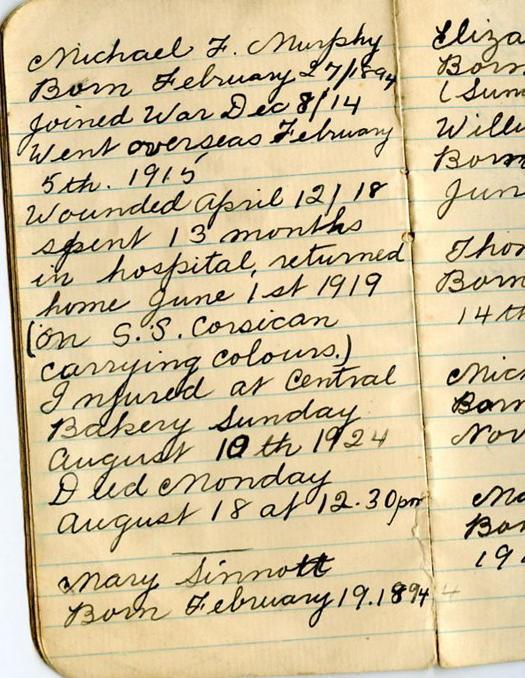 Michael F. Murphy
Born February 27/1894
Joined War Dec 8/14
Went overseas February
5th. 1915
Wounded April 12/18
spent 13 months
in hospital, returned
home June 1st 1919
(on S.S. Corsican
carrying colours.)
Injured at Central
Bakery Sunday
August 10th 1924
Died Monday
August 18 at 12.30pm
Mary Sinnott
Born February 19.1894
Eliza
Born
(Sun
Willi
Born
Jun
Tho
Born
14th
Mich
Born
Nov
Ma
Bo
19